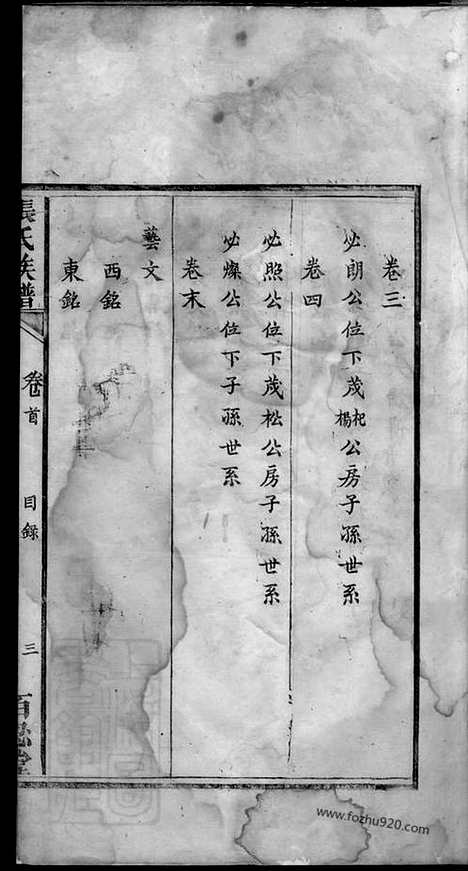 卷三
必朗公位下茂杞楊公房子孫世系
卷四
必照公位下茂松公房子孫世系
必燦公位下子孫世系
卷末
藝文
西銘
東銘
張氏族譜
卷首
目錄
三
百忍堂
www.fozhu920.com